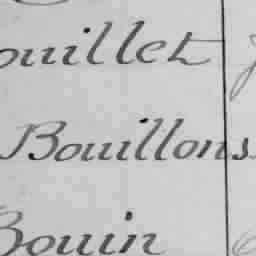 ouillet
Bouillons
Bouin